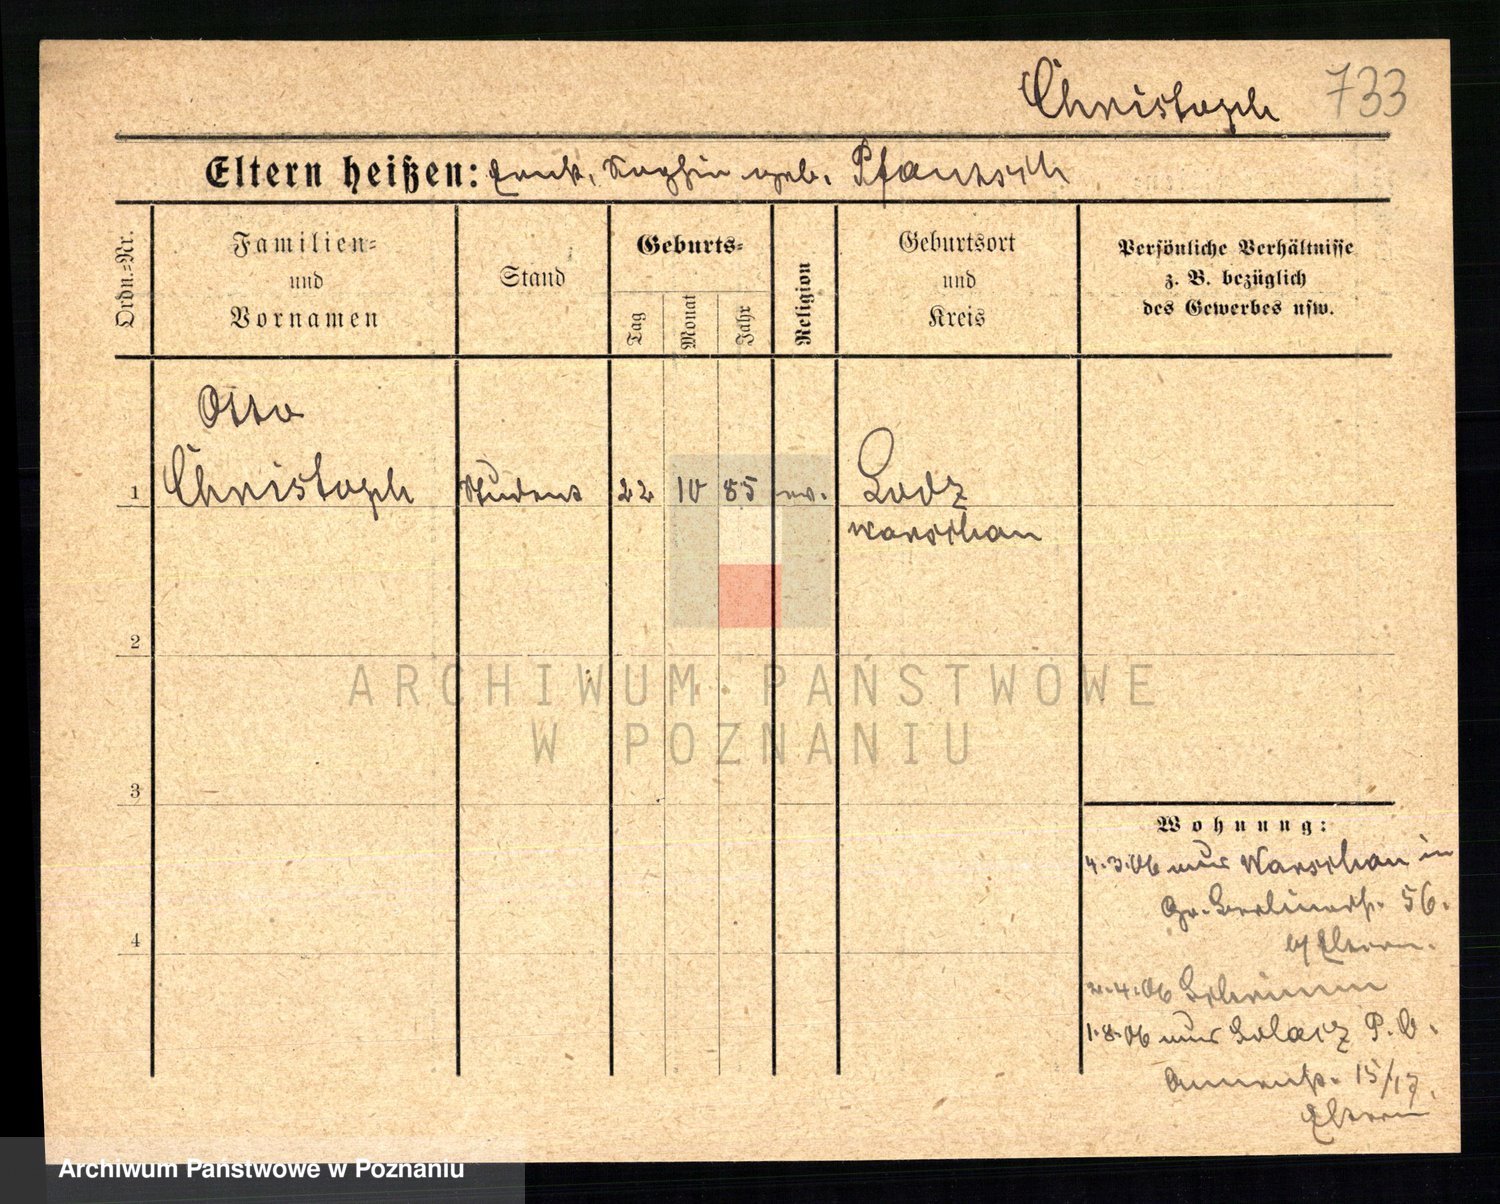 Christoph 733
Eltern heißen: Ernst, Sophie geb. Pfantsch
Ordn.=Nr.
Familien=
und
Vornamen
Stand
Geburts=
Tag
Monat
Jahr
Religion
Geburtsort
und
Kreis
Persönliche Verhältnisse
z. B. bezüglich
des Gewerbes usw.
Otto
1 Christoph Student 22 10 85 ev. Lodz
Warschau
2
3
4
Wohnung:
4.3.06 aus Warschau in
Gr. Berlinerstr. 56.
b/ Eltern.
2.4.06 Schrimm
1.8.06 aus Solacz P. O.
15/17.
Eltern
ARCHIWUM PAŃSTWOWE
W POZNANIU
Archiwum Państwowe w Poznaniu